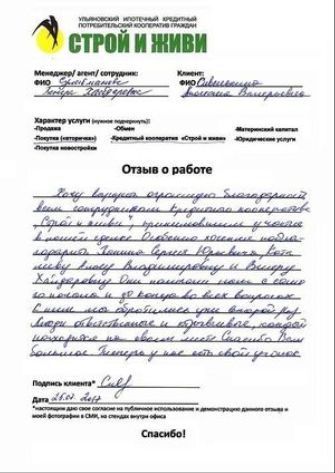 УЛЬЯНОВСКИЙ ИПОТЕЧНЫЙ КРЕДИТНЫЙ
ПОТРЕБИТЕЛЬСКИЙ КООПЕРАТИВ ГРАЖДАН
СТРОЙ И ЖИВИ
Менеджер/ агент/ сотрудник: Клиент:
ФИО ФИО
Характер услуги (нужное подчеркнуть):
-Продажа -Обмен -Материнский капитал
-Покупка «вторичка») -Кредитный кооператив «Строй и живи» -Юридические услуги
-Покупка новостройки
Отзыв о работе
Хочу выразить огромную благодарность
всем сотрудникам Кредитного кооператива
„Строй и живи", принимавшим участие
в нашей сделке Особенно хочется побла-
годарить Сергея Юрьевича,
Владимировну и Венеру
Хайдаровну Они помогали нам с само-
го начала и до конца во всех вопросах
С ними мы обратились уже второй раз
Люди ответственные и отзывчивые, каждый
находится на своем месте Спасибо Вам
большое Теперь у нас есть свой уголок.
Подпись клиента*
Дата 25.07.2017
*настоящим даю свое согласие на публичное использование и демонстрацию данного отзыва и
моей фотографии в СМИ, на стендах внутри офиса
Спасибо!